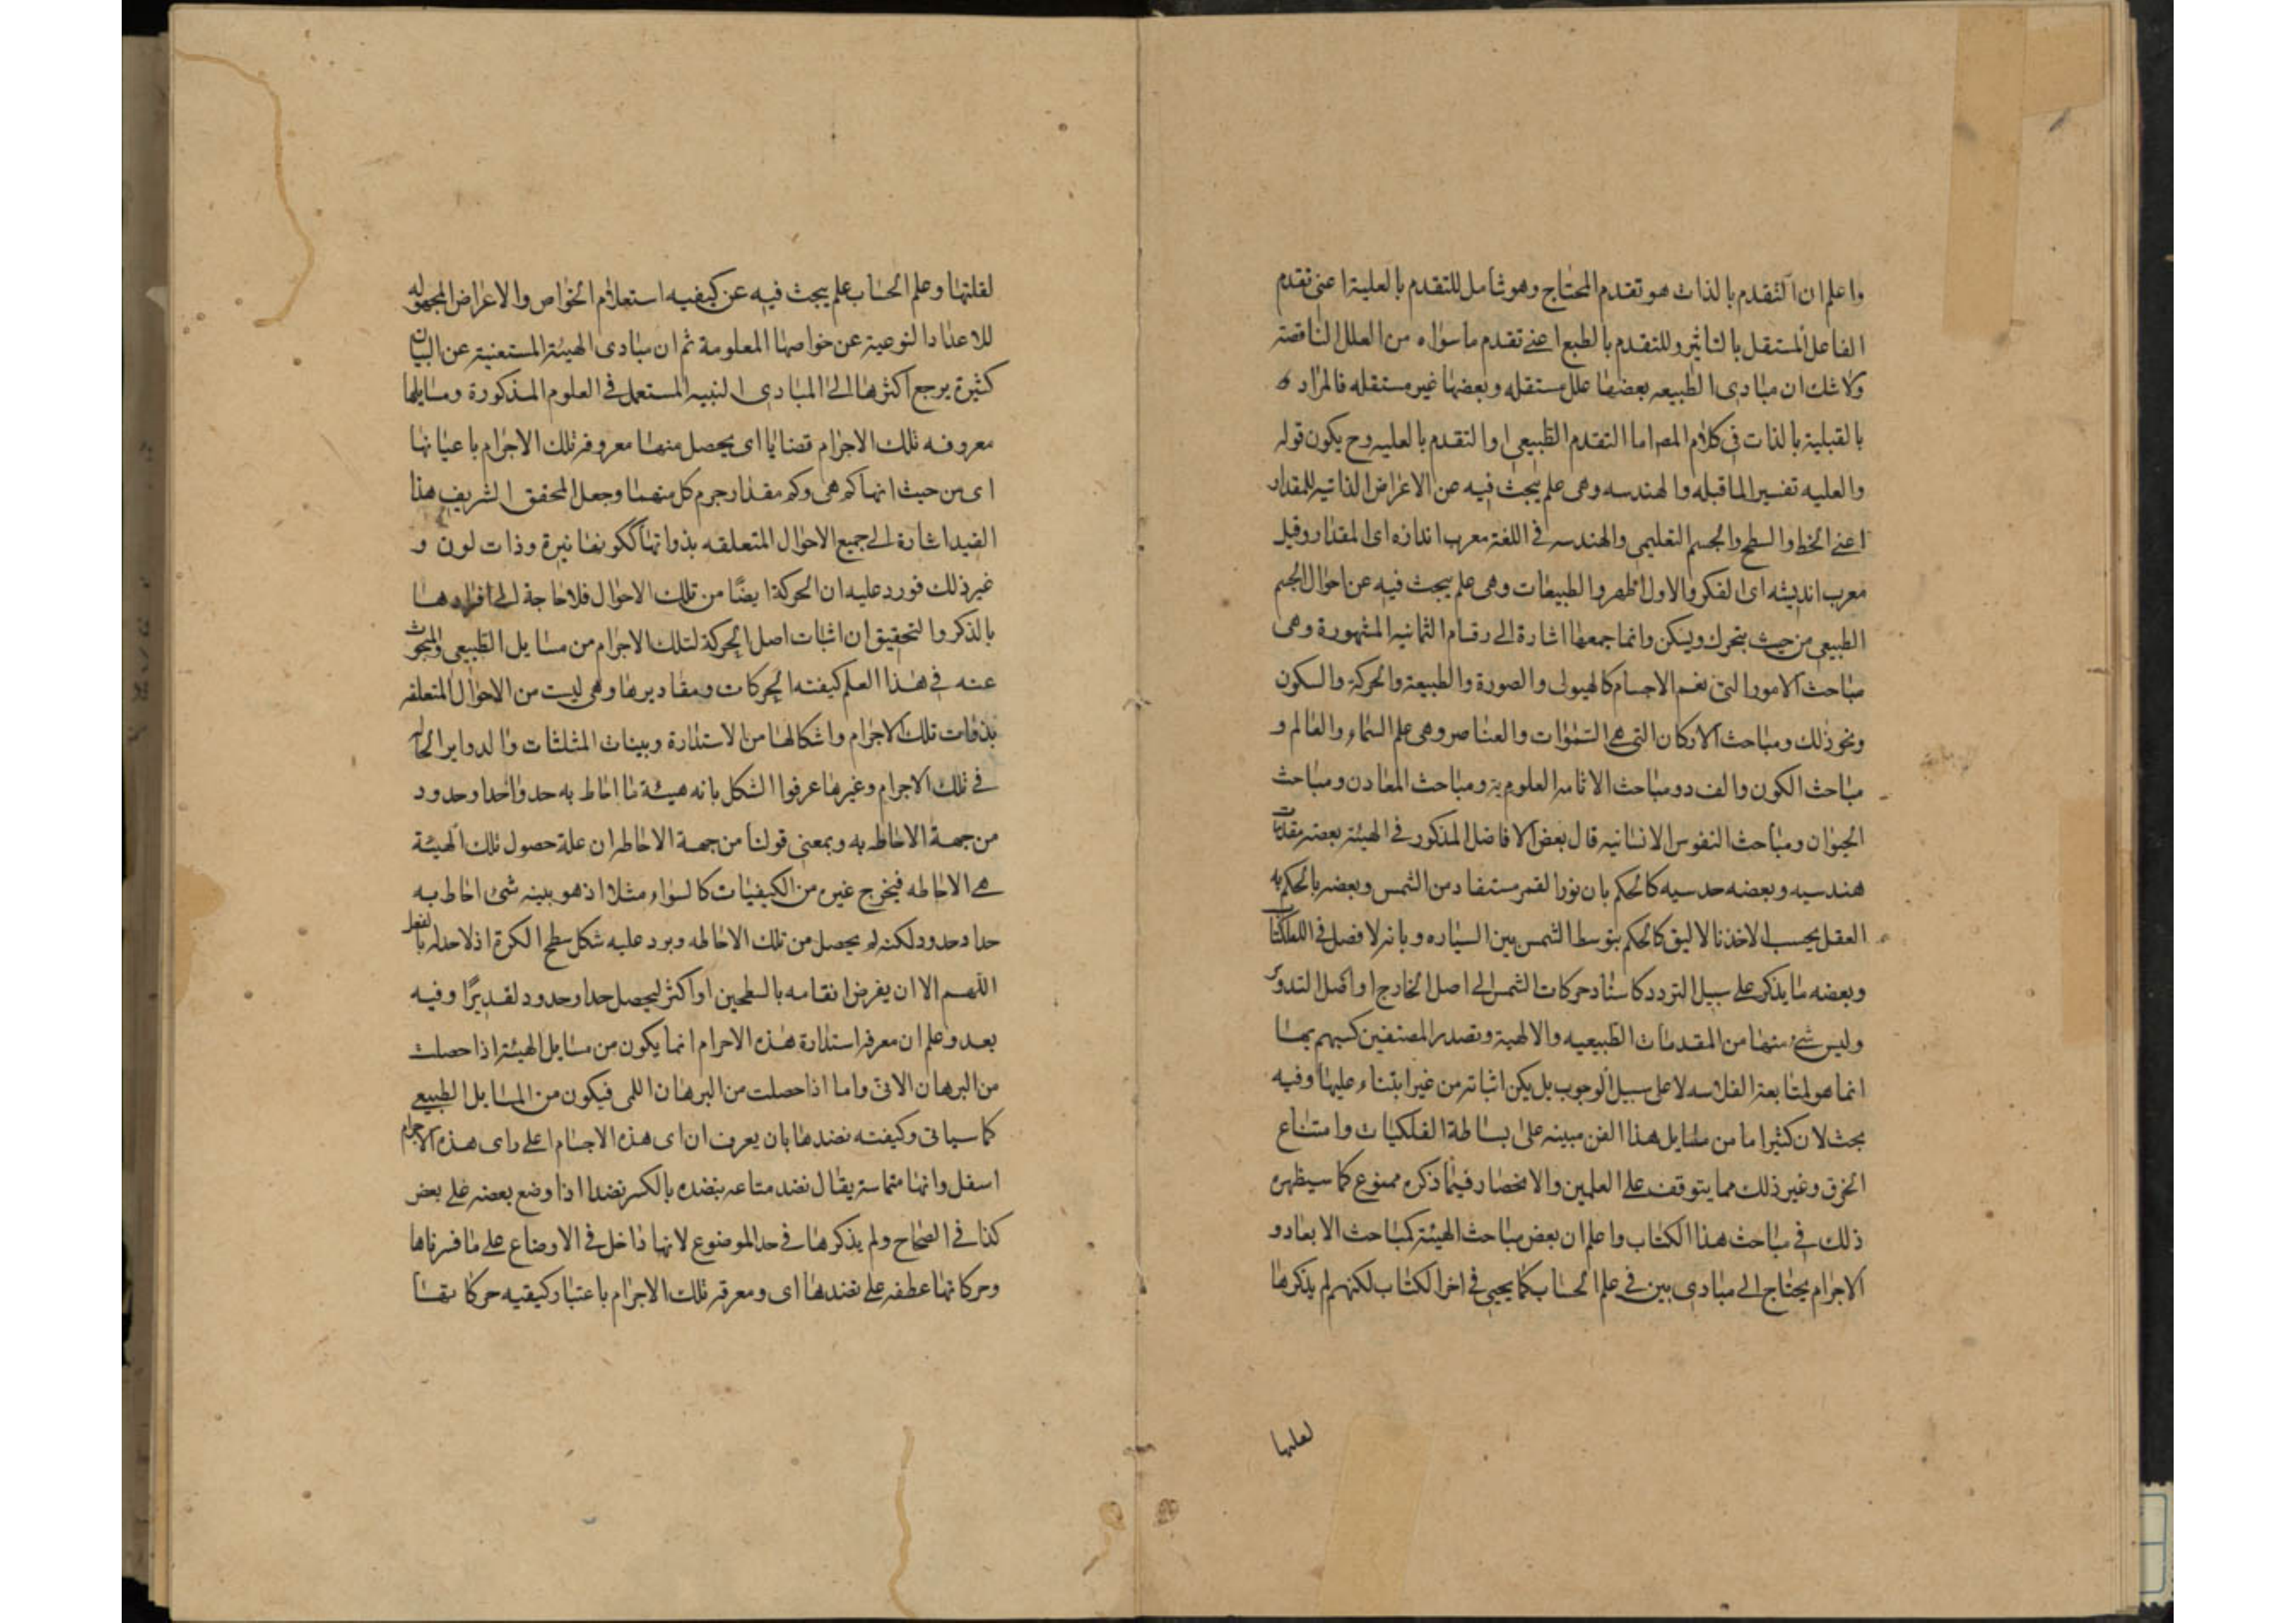 واعلم ان التقدم بالذات هو تقدم المحتاج وهو شامل للتقدم بالعلية اعنى تقدم
الفاعل المستقل بالتاثير وللتقدم بالطبع اعنے تقدم ماسواه من العلل الناقصة
ولا شك ان مبادى الطبيعه بعضها علل مستقله وبعضها غير مستقله فالمراد
بالقبلية بالذات فى كلام المص اما التقدم الطبيعى او التقدم بالعليه وح يكون قوله
والعليه تفسير الما قبله والهندسه وهى علم يبحث فيه عن الاعراض الذاتيه للمقدار
اعنے الخط والسطح والجسم التعليمى والهندسه فى اللغة معرب اندازه اى المقدار وقيل
معرب انديشه اى الفكر والاول اظهر والطبيعات وهى علم يبحث فيه عن احوال الجسم
الطبيعى من حيث يتحرك ويسكن وانما جمعها اشارة الے رقسام الثمانيه المشهورة وهى
مباحث الامور التى تعم الاجسام كالهيولى والصورة والطبيعة والحركة والسكون
ونحو ذلك ومباحث الاركان التى هى السموات والعناصر وهى علم السماء والعالم و
مباحث الكون والفساد ومباحث الاثار العلوية ومباحث المعادن ومباحث
الحيوان ومباحث النفوس الانسانيه قال بعض الافاضل المذكور فى الهيئة بعضه مقدمات
هندسيه وبعضه حدسيه كالحكم بان نور القمر مستفاد من الشمس وبعضه بالحكم به
العقل بحسب الاخذ بالاليق كالحكم بتوسط الشمس بين السياره وبانه لا فصل فى الفلكيات
وبعضه ما يذكر على سبيل التردد كاسناد حركات الشمس الى اصل الخارج او اصل التدوير
وليس شئ منها من المقدمات الطبيعيه والالهية وتصدر المصنفين كتبهم بها
انما هو لمتابعة الفلاسه لا على سبيل الوجوب بل يكن اثباته من غير ابتناء عليها وفيه
بحث لان كثيرا ما من مسايل هذا الفن مبينه على بساطة الفلكيات وامتناع
الخرق وغير ذلك مما يتوقف على العلمين والانحصار فيما ذكره ممنوع كما سيظهره
ذلك فى مباحث هذا الكتاب واعلم ان بعض مباحث الهيئة كمباحث الابعاد و
الاجرام يحتاج الى مبادى بين فى علم الحساب كما يجى فى اخر الكتاب لكنهم لم يذكرها
لقلتها
لقلتها وعلم الحساب علم يبحث فيه عن كيفيه استعلام الخواص والاعراض المجهوله
للاعداد النوعية عن خواصها المعلومة ثم ان مبادى الهيئة المستغنية عن البيان
كثيرة يرجع اكثرها الى المبادى البينه المستعمل فى العلوم المذكورة ومسايلها
معروفه تلك الاجرام قضايا اى يحصل منها معروفه تلك الاجرام باعيانها
اى من حيث انها كم هى وكم مقدار جرم كل منهما وجعل المحقق الشريف هذا
القيد اشارة الى جميع الاحوال المتعلقه بذواتها ككونها نيرة وذات لون و
غير ذلك فورد عليه ان الحركة ايضًا من تلك الاحوال فلا حاجة الى افرادها
بالذكر والتحقيق ان اثبات اصل الحركة لتلك الاجرام من مسايل الطبيعى والمبحوث
عنه فى هذا العلم كيفته الحركات ومقاديرها وهى ليست من الاحوال المتعلقه
بذوات تلك الاجرام واشكالها من الاستدارة وبينات المثلثات والدواير الحاله
فى تلك الاجرام وغيرها عرفوا الشكل بانه هيئة ما احاط به حد واحدا وحدود
من جهة الاحاطه به وبمعنى قولنا من جهة الاحاطه ان علة حصول تلك الهيئة
هى الاحاطه فيخرج غيره من الكيفيات كالسواد مثلا اذ هو بينه شئ احاط به
حدا وحدود لكنه لم يحصل من تلك الاحاطه ويرد عليه شكل سطح الكرة اذ لا حدله بالفعل
اللهم الا ان يفرض انقسامه بالسطحين او اكثر ليحصل حدا وحدود لقديرًا وفيه
بعد وعلم ان معرفة استدارة هذه الاجرام انما يكون من مسايل الهيئة اذا حصلت
من البرهان الانى واما اذا حصلت من البرهان اللمى فيكون من المسايل الطبيعى
كما سياتى وكيفته نضدها بان يعرف ان اى هذه الاجسام اعلى واى هذه الاجرام
اسفل وانها متماسة يقال نضد متاعه ينضده بالكسر نضدا اذا وضع بعضه على بعض
كذا فى الصحاح ولم يذكرها فى حد الموضوع لانها داخل فى الاوضاع على ما فسرناها
وحركاتها عطفه على نضدها اى ومعرفه تلك الاجرام باعتبار كيفيه حركاتها